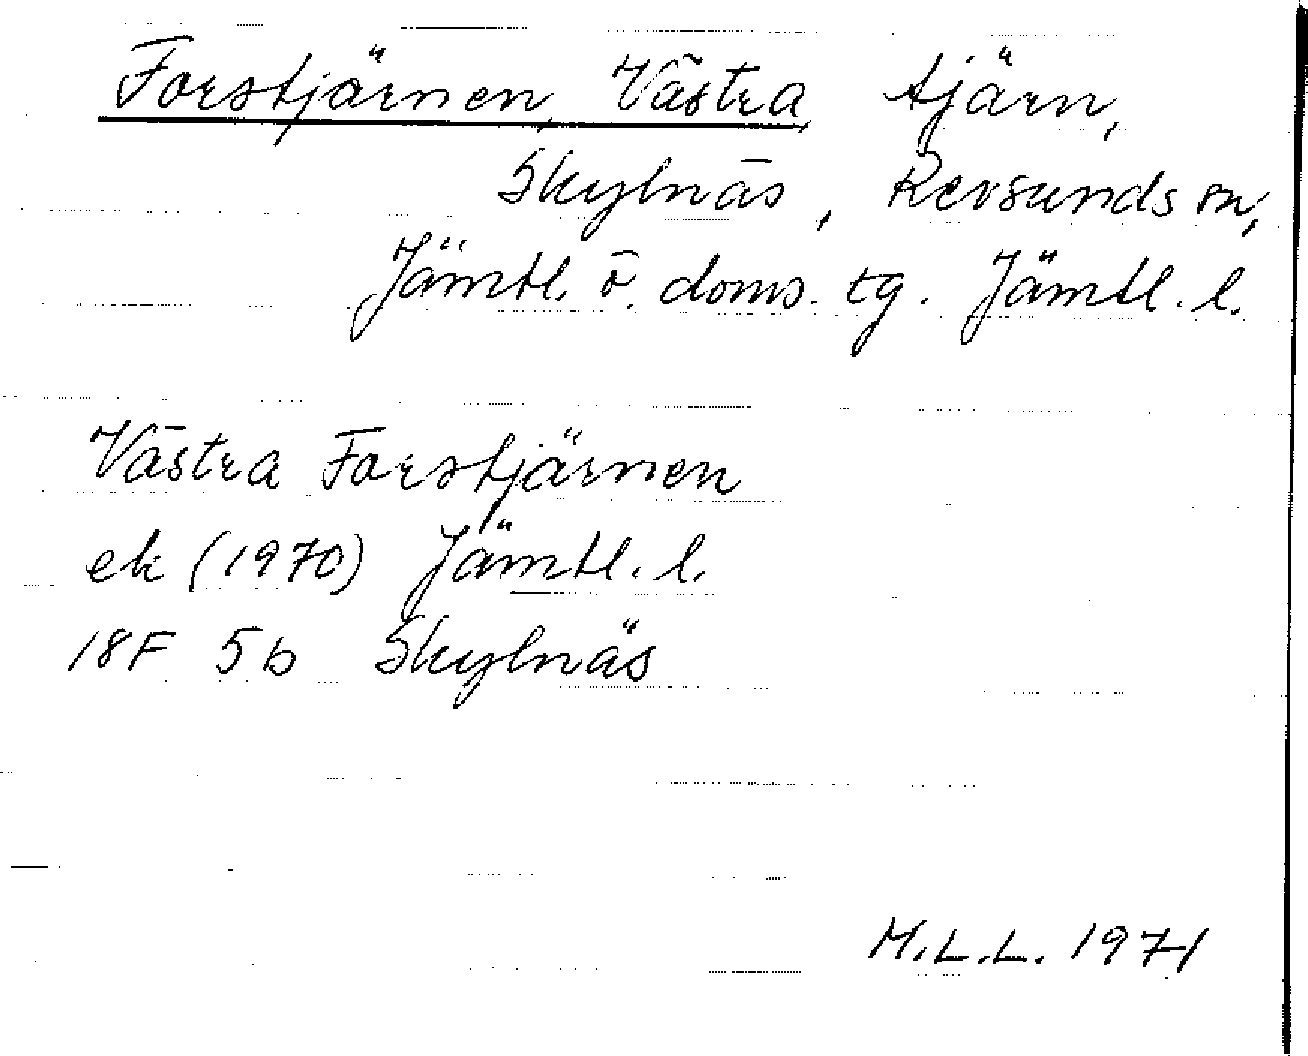 Forstjärnen, Västra, tjärn,
Skylnäs, Revsunds sn,
Jämtl. ö. doms. tg. Jämtl. l.
Västra Forstjärnen
ek (1970) Jämtl. l.
18F 5b Skylnäs
M.L.L. 1971